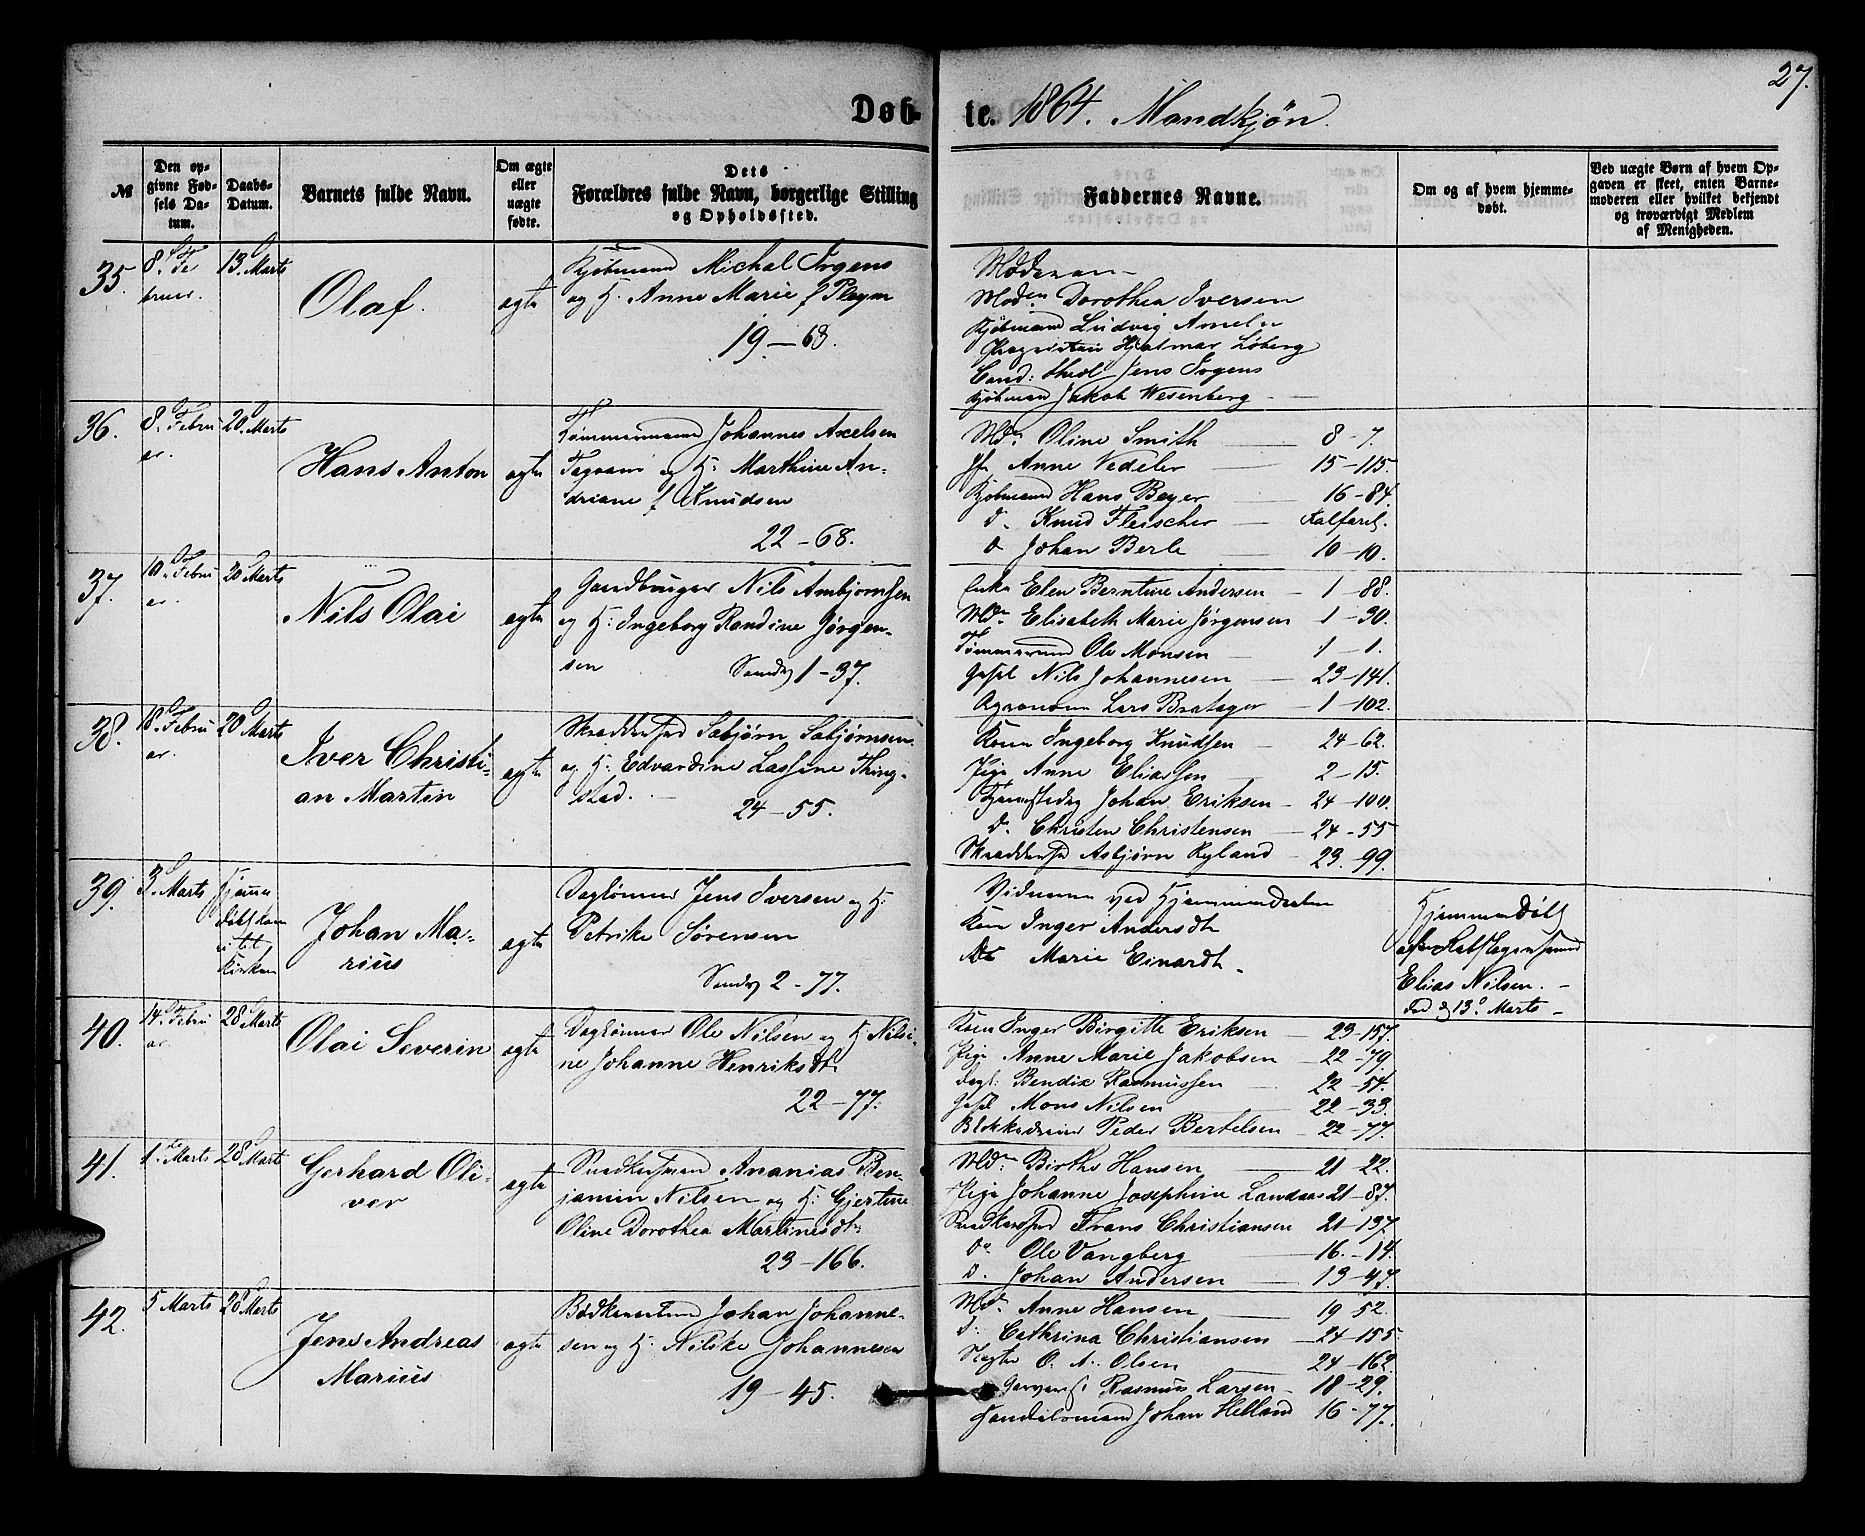 27.
Døb-te. 1864. Mandkjøn.
№
Den op-
givne Fød-
sels Da-
tum.
Daabs-
Datum.
Barnets fulde Navn.
Om ægte
eller
uægte
fødte.
Dets
Forældres fulde Navn, borgerlige Stilling
og Opholdssted.
Faddernes Navne.
Om og af hvem hjemme-
døbt.
Ved uægte Børn af hvem Op-
gaven er skeet, enten Barne-
moderen eller hvilket bekjendt
og troværdigt Medlem
af Menigheden.
35.
8. Fe
bruar.
13. Marts
Olaf.
ægte
Kjøbmand Michal Irgens
og H. Anne Marie f Pleym
19.-68.
Moderen
Mdm Dorothea Iversen
Kjøbmand Ludvig
Hjalmar Løberg
Cand: theol Jens Irgens
Kjøbmand Jakob Wesenberg
36.
8. Febru
ar.
20. Marts
Hans Anton
ægte
Tømmermand Johannes Axelsen
og H: Marthine An-
driane f Knudsen
22-68.
Md. Oline Smith 8-7.
Jfr Anne Vedeler 15-115.
Kjøbmand Hans Beyer 16-84.
d. Knud Fleischer Kalfaret.
d Johan Berle 10-10.
37.
10. Febru
ar.
20 Marts
Nils Olai
ægte
Gaardbruger Nils Ambjørnsen
og H: Ingeborg Randine Jørgen-
sen Sandv 1-37.
Enke Elen Berntine Andersen 1-88.
Mdm Elisabeth Marie Jørgensen 1-30.
Tømmermd Ole Monsen 1-1.
Gesel Nils Johannesen 23-141.
Agronom Lars Bratager 1-102.
38.
18. Febru
ar.
20 Marts
Iver Christi-
an Martin
ægte
Skrædersvd Sabjørn Sabjørnsen
og H. Edvardine Lassine Thing-
stad.
24-55.
Kone Ingeborg Knudsen 24-62.
Pige Anne Eliassen 2-15.
Johan Eriksen 24-100.
d. Christen Christensen 24-55
Skrædersvd Asbjørn Ryland 23.-99.
39.
3. Marts
Hjemme
døbt kom
ei til
Kirken
Johan Ma-
rius
ægte
Daglønner Jens Iversen og H:
Petrike Sørensen
Sandv 2-77.
Vidnerne ved Hjemmedaaben
Kone Inger Andersdt
do Marie Einardt.
Hjemmedøbt
af
Elias Nilsen.
13. Marts
40.
14. Febru
ar.
28 Marts
Olai Severin
ægte
Daglønner Ole Nilsen og H Nilsi-
ne Johanne Henriksdt.
22-77.
Kone Inger Birgitte Eriksen 23-157.
Pige Anne Marie Jakobsen 22-79.
Dagl: Bendix Rasmussen 22-54.
Gesel Mons Nilsen 22-33.
Blokkedreier Peder Bertelsen 22-77.
41.
1. Marts
28 Marts
Gerhard Oli-
ver
ægte
Snedkersvend Ananias Ben-
jamin Nilsen og H: Gjertine
Oline Dorothea Martinesdt.
23-166.
Mdm Birthe Hansen 21-22.
Pige Johanne Josephine Landaas 21-87.
Snedkersvd Frans Christiansen 21-137.
do Ole Vangberg 16.-14.
d. Johan Andersen 13-47.
42.
5 Marts
28 Marts
Jens Andreas
Marius
ægte
Bødkersvend Johan Johanne-
sen og H. Nilske Johannesen
19-45.
Md. Anne Hansen 19-52.
d. Cathrina Christiansen 24-155
O. A. Olsen 24-162.
Garvers. Rasmus Larsen 18-29.
Handelsmand Johan Helland 16-77.